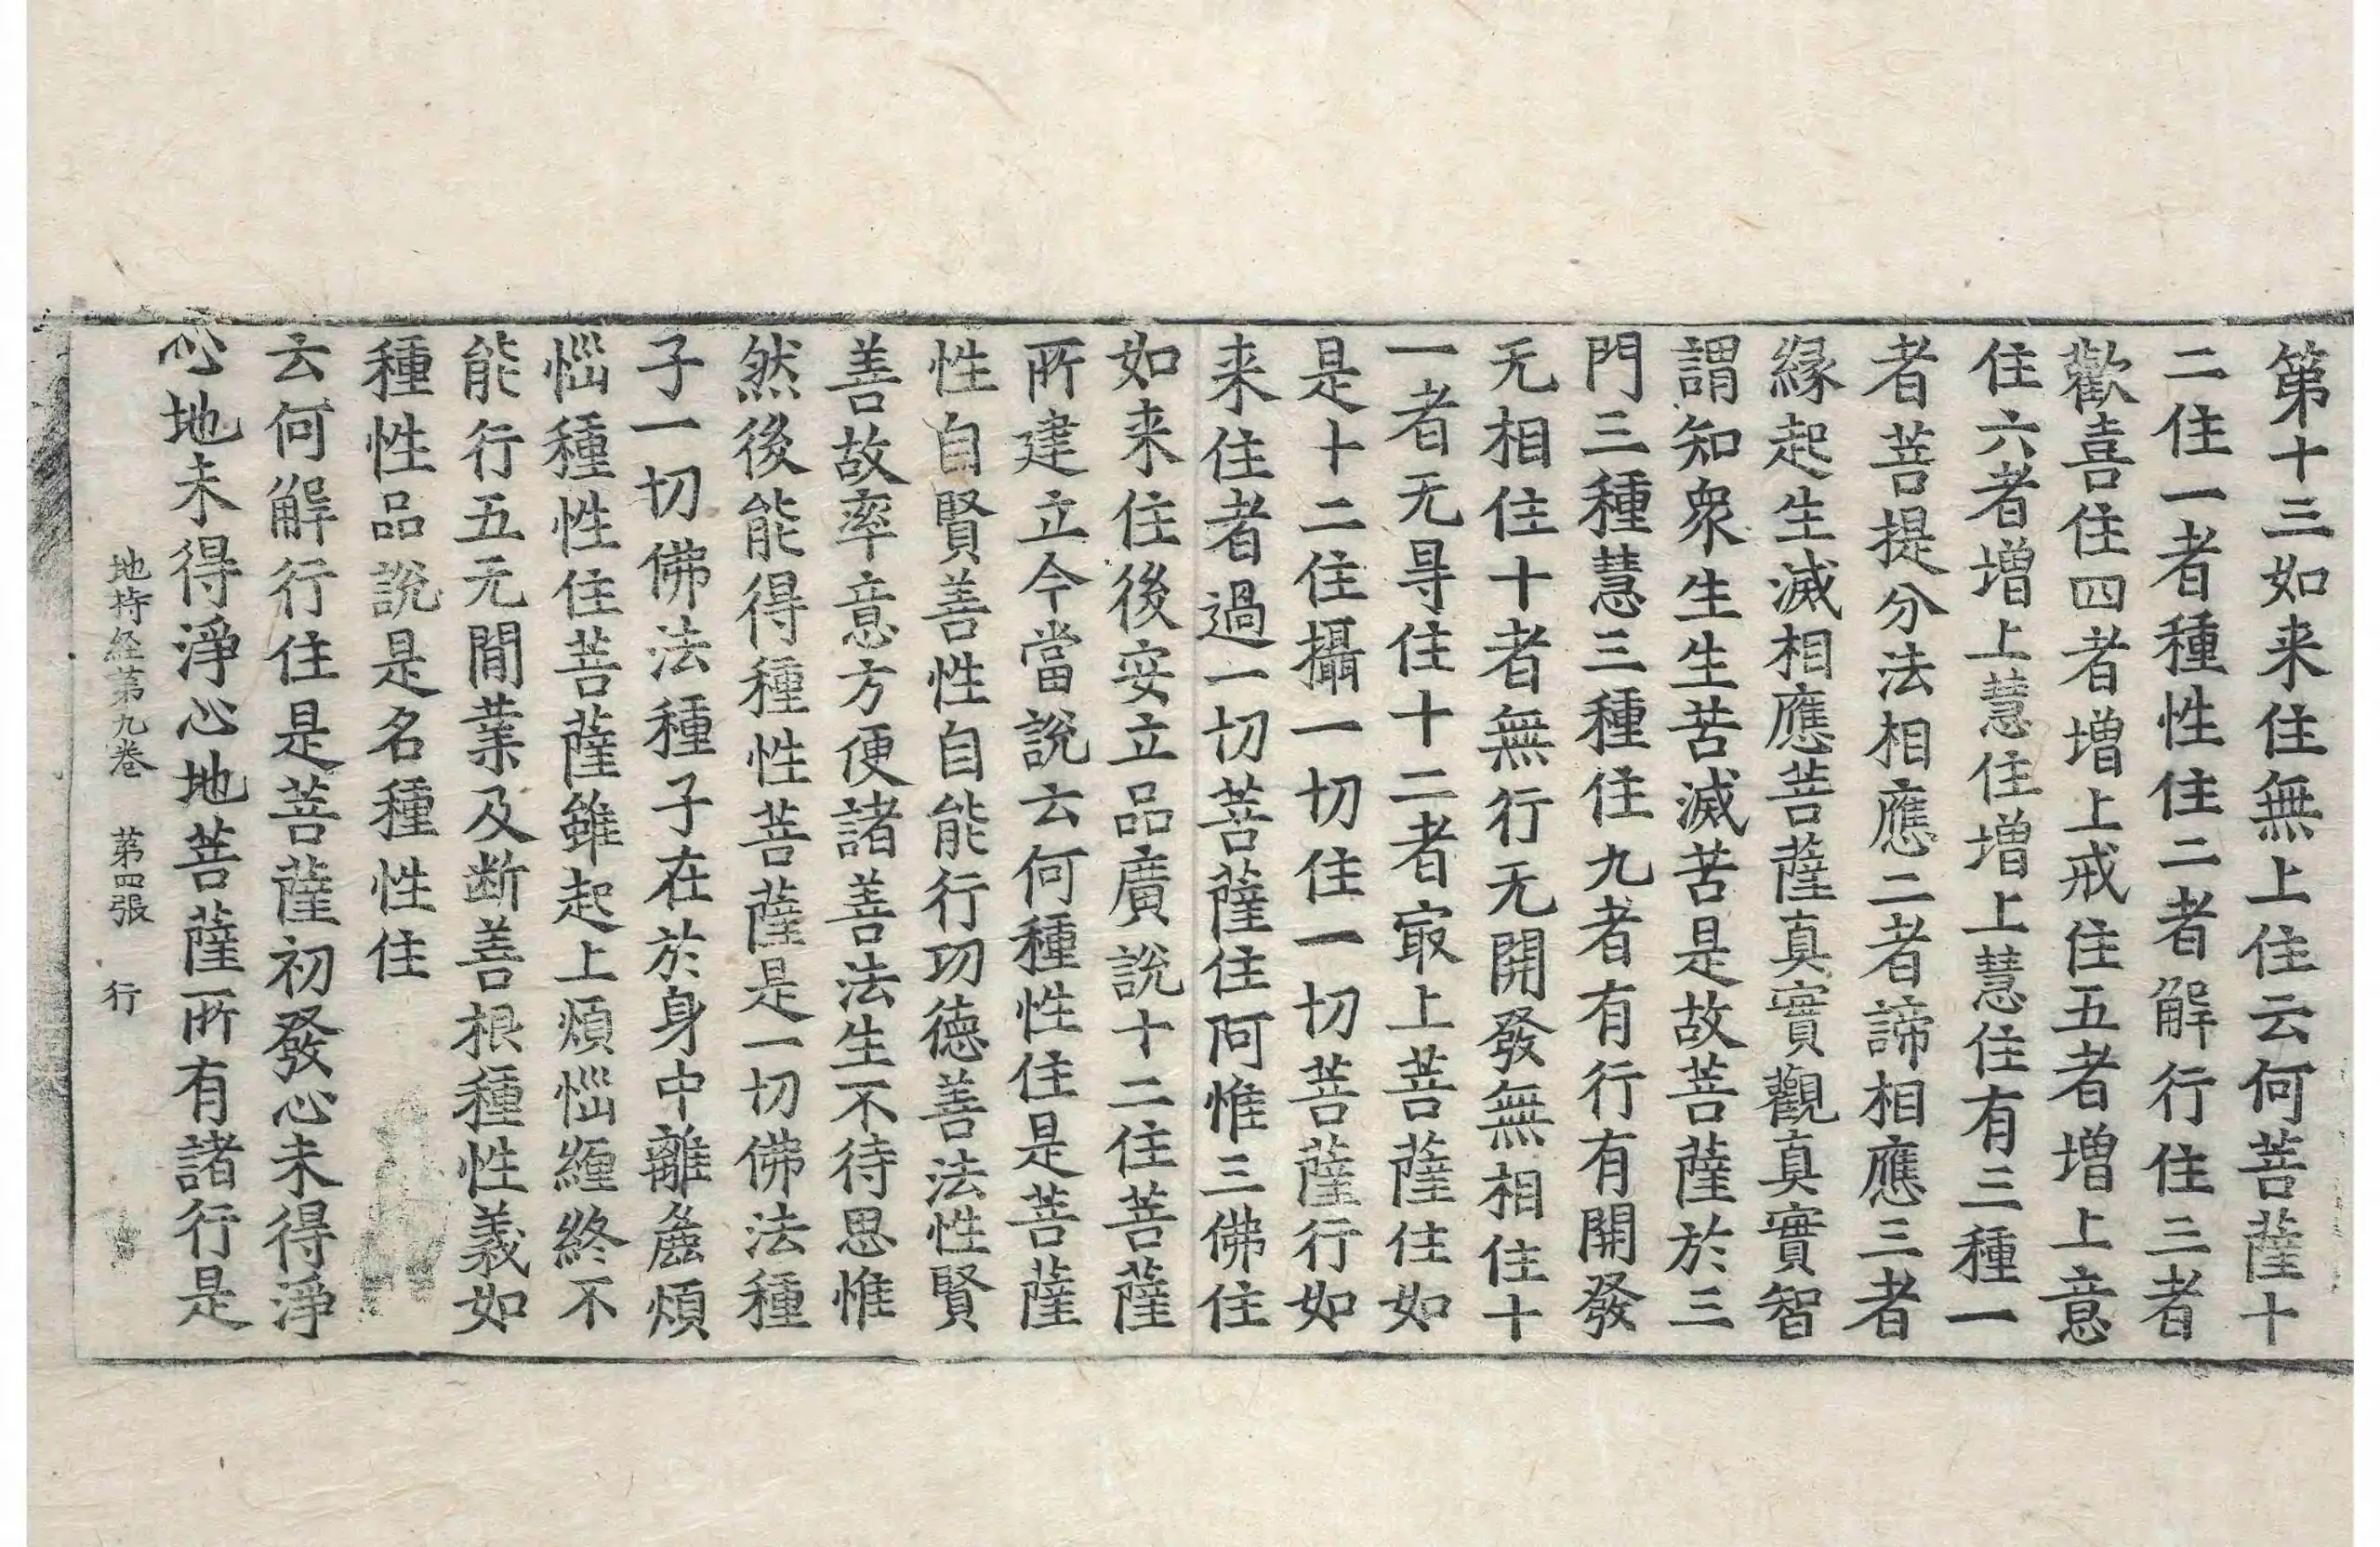 第十三如来住無上住云何菩薩十
二住一者種性住二者解行住三者
歡喜住四者増上戒住五者増上意
住六者増上慧住増上慧住有三種一
者菩提分法相應二者諦相應三者
縁起生滅相應菩薩真實觀真實智
謂知衆生生苦滅苦是故菩薩於三
門三種慧三種住九者有行有開發
无相住十者無行无開發無相住十
一者无㝵住十二者㝡上菩薩住如
是十二住攝一切住一切菩薩行如
来住者過一切菩薩住阿惟三佛住
如来住後安立品廣說十二住菩薩
所建立今當說云何種性住是菩薩
性自賢善性自能行功德善法性賢
善故率意方便諸善法生不待思惟
然後能得種性菩薩是一切佛法種
子一切佛法種子在於身中離麁煩
惱種性住菩薩雖起上煩惱纏終不
能行五无間業及断善根種性義如
種性品說是名種性住
云何解行住是菩薩初發心未得淨
心地未得淨心地菩薩所有諸行是
地持経第九巻　第四張　行